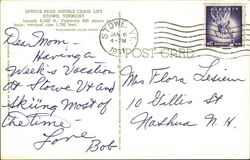 SPRUCE PEAK DOUBLE CHAIR LIFT
STOWE, VERMONT
Length 6,200 ft. Capacity 600 skiers
hour, vertical rise 1,700 feet
STOWE
JAN 6
4 PM
POST CARD
Dear Mom
Having a
Week's Vacation
at Stowe Vt and
skiing most of
the time -
Love
Bob
Mrs Flora Lesieur
10 Gillis St
Nashua N.H.